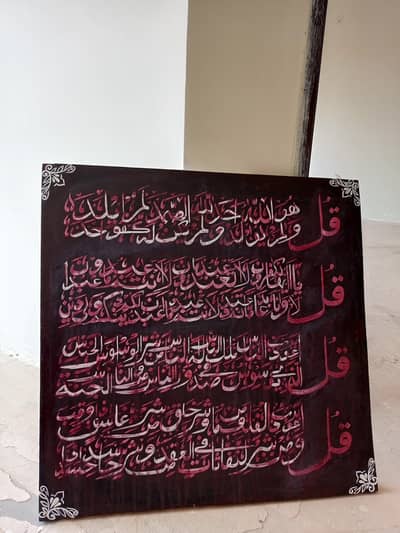 قل هو الله احد الله الصمد لم يلد
ولم يولد ولم يكن له كفوا احد
قل يا ايها الكافرون لا اعبد ما تعبدون ولا انتم عابدون ما اعبد
ولا انا عابد ما عبدتم ولا انتم عابدون ما اعبد لكم دينكم ولي دين
قل اعوذ برب الناس ملك الناس اله الناس من شر الوسواس الخناس
الذي يوسوس في صدور الناس من الجنة والناس
قل اعوذ برب الفلق من شر ما خلق ومن شر غاسق اذا وقب
ومن شر النفاثات في العقد ومن شر حاسد اذا حسد